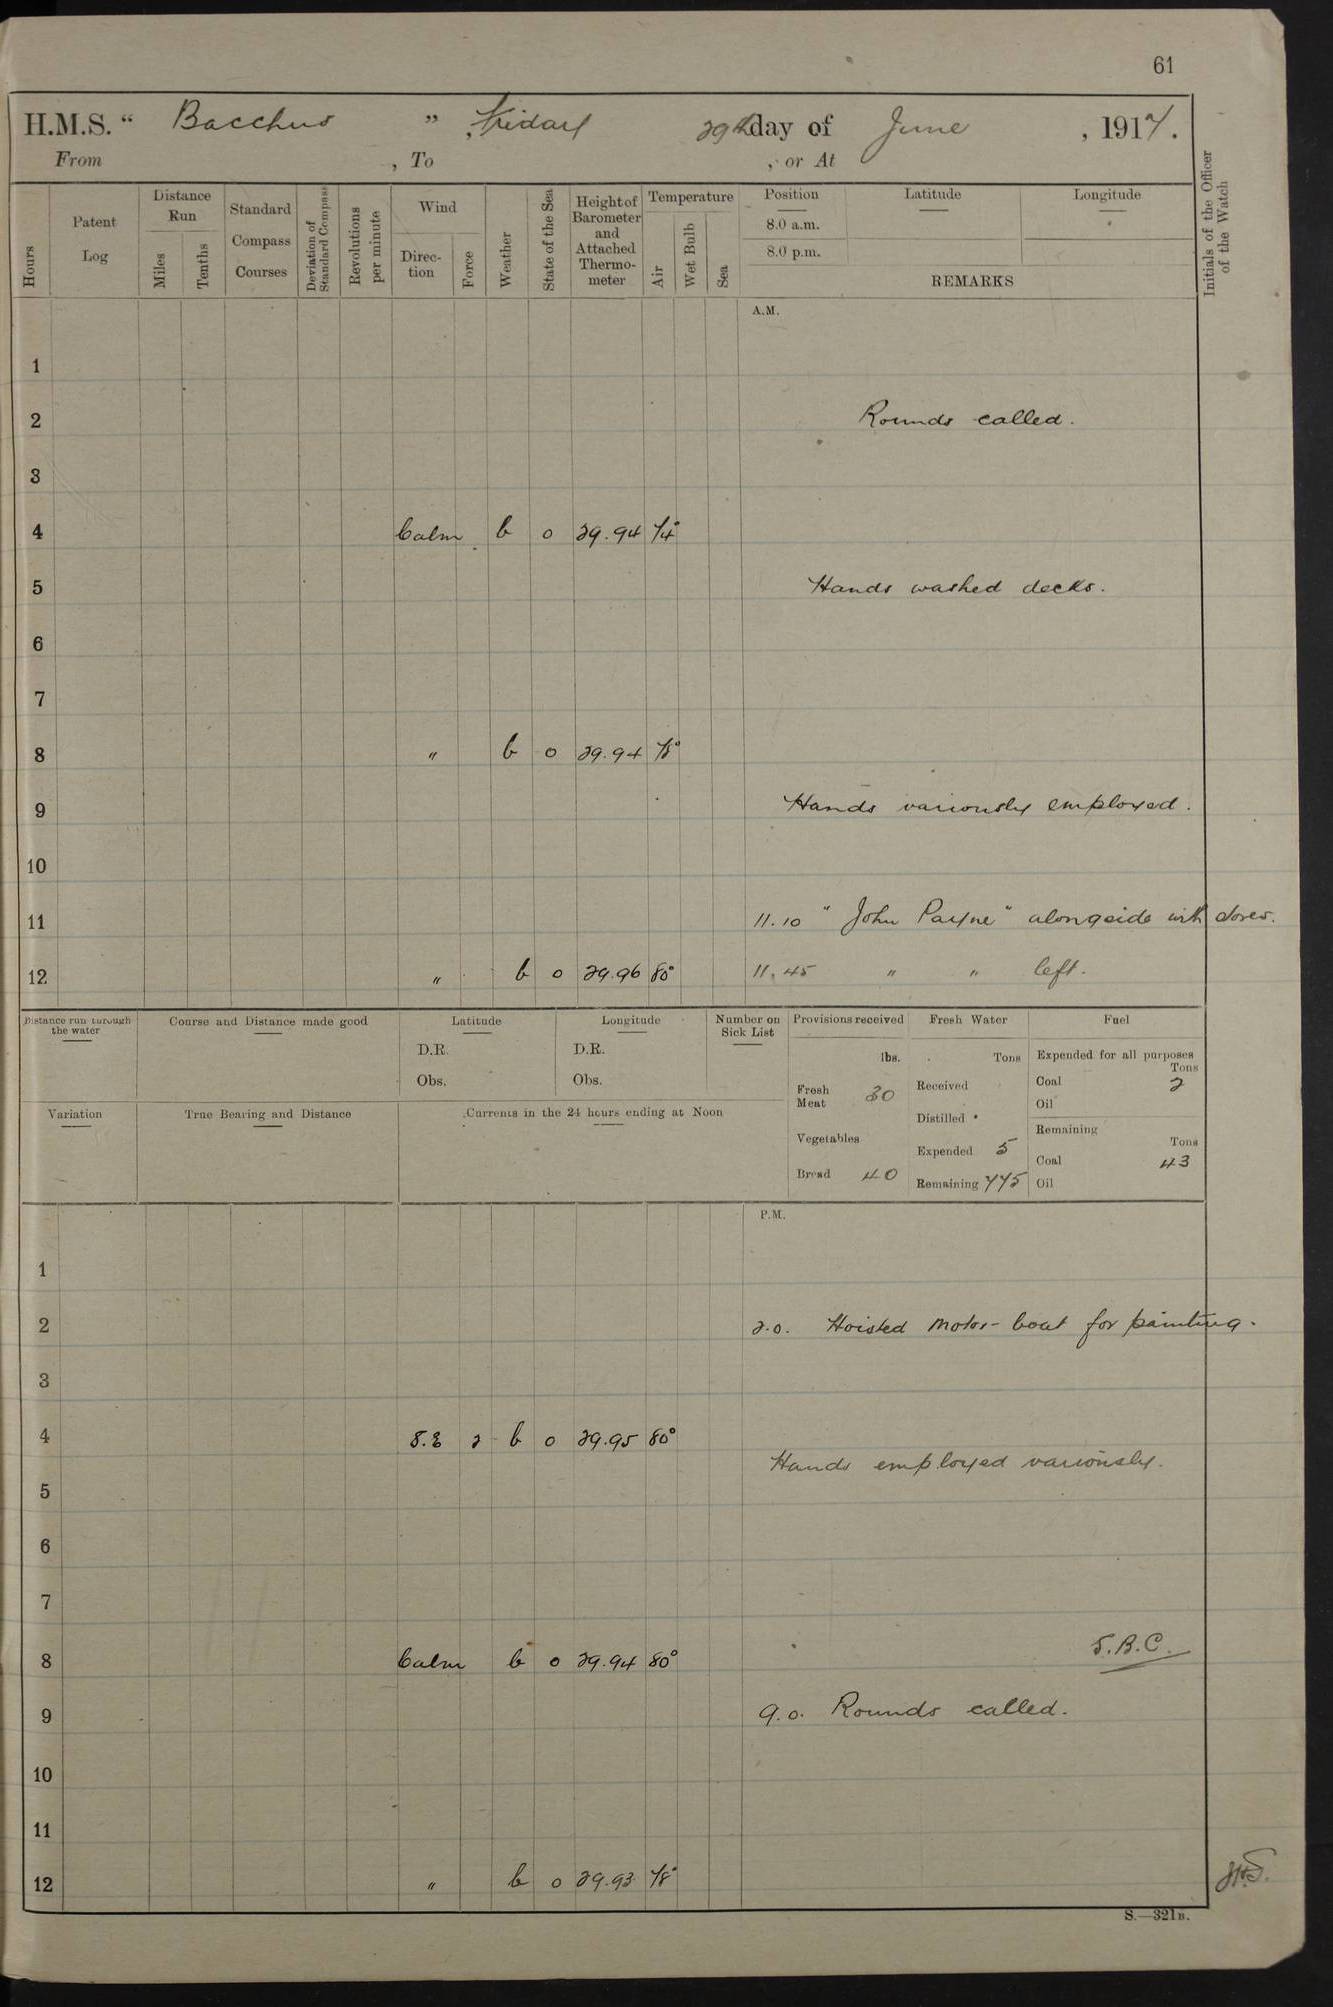 61
H.M.S. “ Bacchus ” , Friday 29th day of June , 1917.
From , To , or At
Hours
Patent Log
Distance Run
Miles
Tenths
Standard Compass Courses
Deviation of Standard Compass
Revolutions per minute
Wind
Direction
Force
Weather
State of the Sea
Height of Barometer and Attached Thermometer
Temperature
Air
Wet Bulb
Sea
Position Latitude Longitude
8.0 a.m.
8.0 p.m.
REMARKS
Initials of the Officer of the Watch
A.M.
1
2 Rounds called.
3
4 Calm b o 29.94 74°
5 Hands washed decks.
6
7
8 " b o 29.94 78°
9 Hands variously employed.
10
11 11.10 "John Payne" alongside with stores.
12 " b o 29.96 80° 11.45 " " left.
Distance run through the water
Course and Distance made good
Latitude
D.R.
Obs.
Longitude
D.R.
Obs.
Number on Sick List
Variation
True Bearing and Distance
Currents in the 24 hours ending at Noon
Provisions received
lbs.
Fresh Meat 30
Vegetables
Bread 40
Fresh Water
Tons
Received
Distilled
Expended 5
Remaining 775
Fuel
Expended for all purposes
Tons
Coal 2
Oil
Remaining
Tons
Coal 43
Oil
P.M.
1
2 2.0. Hoisted motor-boat for painting.
3
4 S.E 2 b o 29.95 80°
Hands employed variously.
5
6
7
8 Calm b o 29.94 80° S.B.C.
9 9.0. Rounds called.
10
11
12 " b o 29.93 78°
S.—321B.